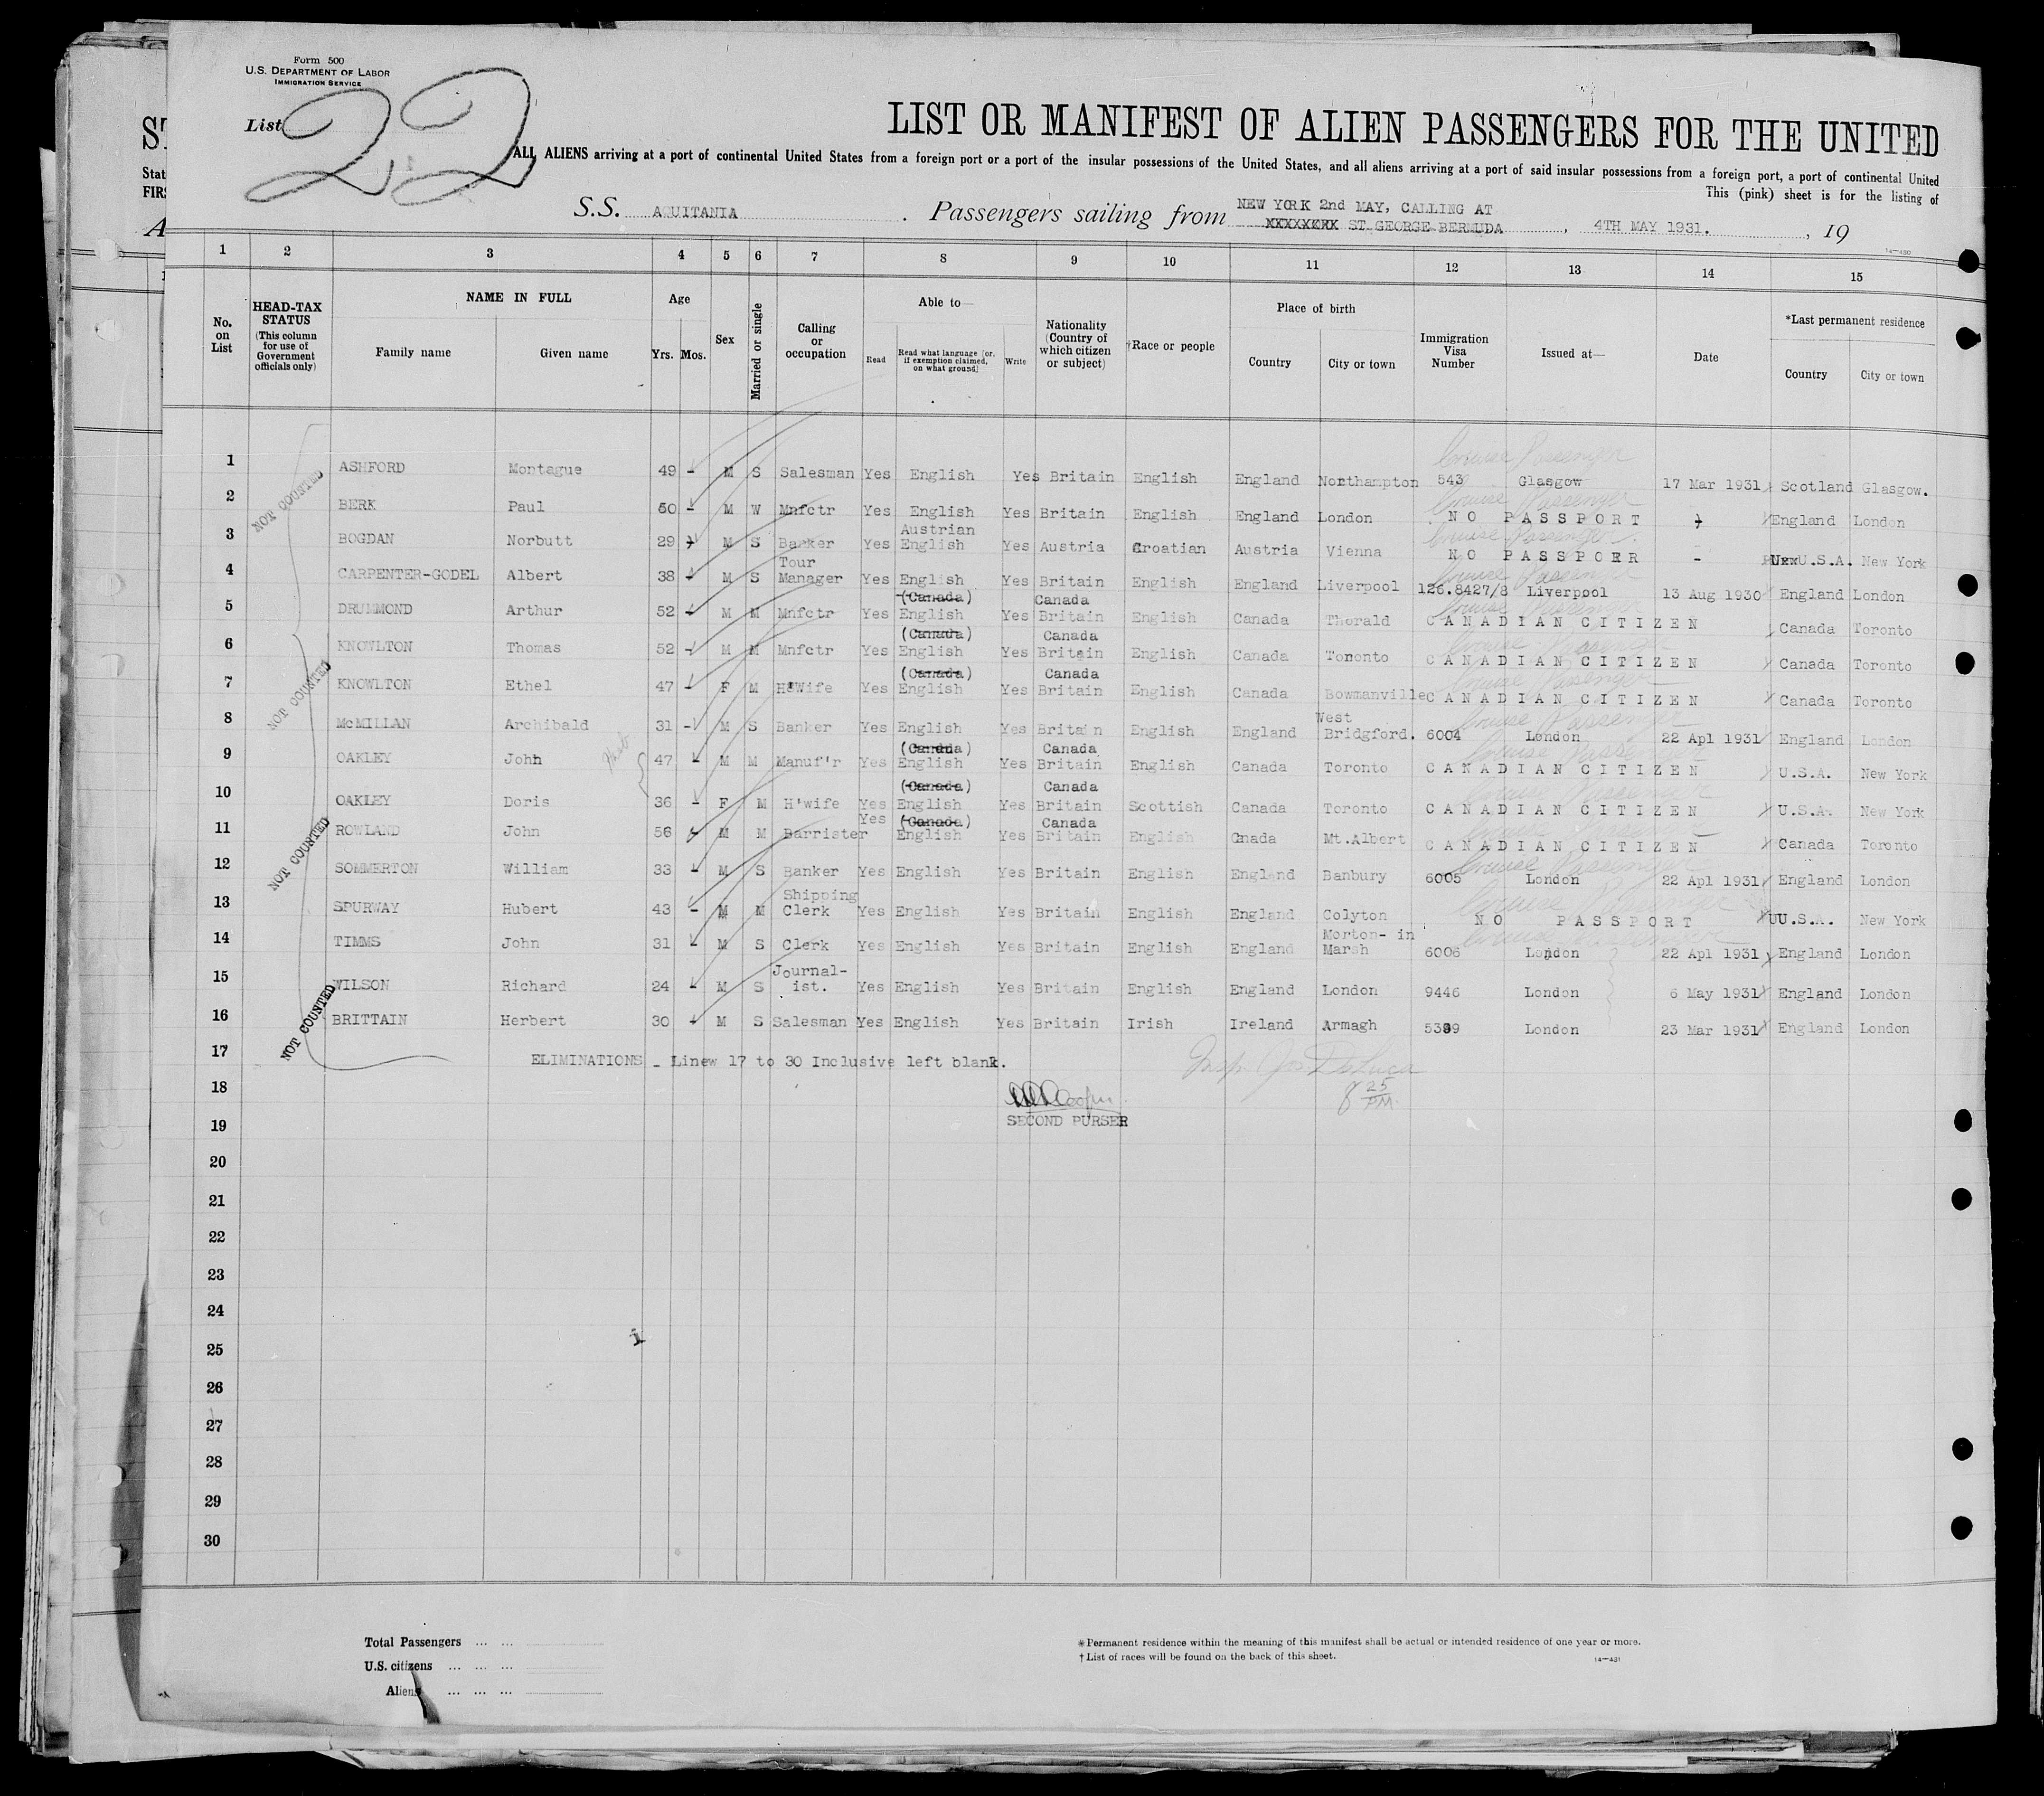 Form 500
U.S. DEPARTMENT OF LABOR
IMMIGRATION SERVICE
List 22
LIST OR MANIFEST OF ALIEN PASSENGERS FOR THE UNITED
ALL ALIENS arriving at a port of continental United States from a foreign port or a port of the insular possessions of the United States, and all aliens arriving at a port of said insular possessions from a foreign port, a port of continental United
This (pink) sheet is for the listing of
S.S. AQUITANIA . Passengers sailing from NEW YORK 2nd MAY, CALLING AT
ST.GEORGE BERMUDA , 4TH MAY 1931. , 19
1 2 3 4 5 6 7 8 9 10 11 12 13 14 15
No. on List
HEAD-TAX STATUS (This column for use of Government officials only)
NAME IN FULL Family name Given name
Age Yrs. Mos.
Sex
Married or single
Calling or occupation
Able to— Read Read what language [or, if exemption claimed, on what ground] Write
Nationality (Country of which citizen or subject)
†Race or people
Place of birth Country City or town
Immigration Visa Number
Issued at—
Date
*Last permanent residence Country City or town
Cruise Passenger
1 ASHFORD Montague 49 - M S Salesman Yes English Yes Britain English England Northampton 543 Glasgow 17 Mar 1931 Scotland Glasgow.
Cruise Passenger
2 BERK Paul 50 - M W Mnfctr Yes English Yes Britain English England London NO PASSPORT England London
Austrian Cruise Passenger
3 BOGDAN Norbutt 29 M S Banker Yes English Yes Austria Croatian Austria Vienna NO PASSPOER - U.S.A. New York
Tour Cruise Passenger
4 CARPENTER-GODEL Albert 38 - M S Manager Yes English Yes Britain English England Liverpool 126.8427/8 Liverpool 13 Aug 1930 England London
(Canada) Canada Cruise Passenger
5 DRUMMOND Arthur 52 - M M Mnfctr Yes English Yes Britain English Canada Thorald CANADIAN CITIZEN Canada Toronto
(Canada) Canada Cruise Passenger
6 KNOWLTON Thomas 52 - M M Mnfctr Yes English Yes Britain English Canada Toronto CANADIAN CITIZEN Canada Toronto
(Canada) Canada Cruise Passenger
7 KNOWLTON Ethel 47 - F M H'Wife Yes English Yes Britain English Canada Bowmanville CANADIAN CITIZEN Canada Toronto
West Cruise Passenger
8 McMILLAN Archibald 31 - M S Banker Yes English Yes Britain English England Bridgford. 6004 London 22 Apl 1931 England London
(Canada) Canada Cruise Passenger
9 OAKLEY John 47 - M M Manuf'r Yes English Yes Britain English Canada Toronto CANADIAN CITIZEN U.S.A. New York
(Canada) Canada Cruise Passenger
10 OAKLEY Doris 36 - F M H'wife Yes English Yes Britain Scottish Canada Toronto CANADIAN CITIZEN U.S.A. New York
Yes (Canada) Canada
11 ROWLAND John 56 - M M Barrister English Yes Britain English Cnada Mt.Albert CANADIAN CITIZEN Canada Toronto
Cruise Passenger
12 SOMMERTON William 33 - M S Banker Yes English Yes Britain English England Banbury 6005 London 22 Apl 1931 England London
Shipping Cruise Passenger
13 SPURWAY Hubert 43 - M M Clerk Yes English Yes Britain English England Colyton NO PASSPORT U.S.A. New York
Morton- in
14 TIMMS John 31 - M S Clerk Yes English Yes Britain English England Marsh 6006 London 22 Apl 1931 England London
Journal-
15 WILSON Richard 24 - M S ist. Yes English Yes Britain English England London 9446 London 6 May 1931 England London
16 BRITTAIN Herbert 30 - M S Salesman Yes English Yes Britain Irish Ireland Armagh 5399 London 23 Mar 1931 England London
NOT COUNTED
NOT COUNTED
NOT COUNTED
NOT COUNTED
17 ELIMINATIONS - Linew 17 to 30 Inclusive left blank.
Insp Jos DeLuca
18 8 25 PM
19 SECOND PURSER
20
21
22
23
24
25
26
27
28
29
30
Total Passengers ... ...
U.S. citizens ... ... ...
Aliens ... ... ...
*Permanent residence within the meaning of this manifest shall be actual or intended residence of one year or more.
†List of races will be found on the back of this sheet.
14—431